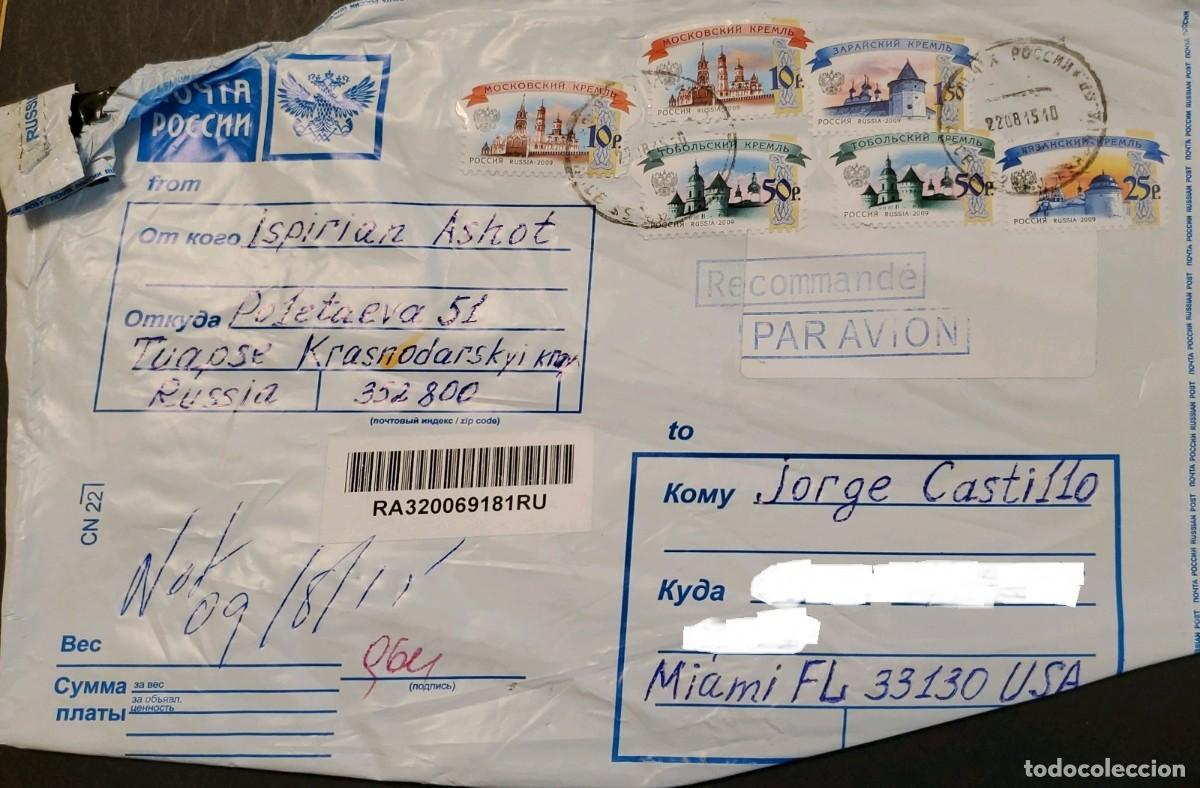 ПОЧТА
РОССИИ
RUSSIA
МОСКОВСКИЙ КРЕМЛЬ
10 Р.
РОССИЯ RUSSIA•2009
МОСКОВСКИЙ КРЕМЛЬ
10 Р.
РОССИЯ RUSSIA•2009
ЗАРАЙСКИЙ КРЕМЛЬ
РОССИЯ RUSSIA•2009
РОССИИ
22081510
ТОБОЛЬСКИЙ КРЕМЛЬ
50 Р.
РОССИЯ RUSSIA•2009
ТОБОЛЬСКИЙ КРЕМЛЬ
50 Р.
РОССИЯ RUSSIA•2009
РЯЗАНСКИЙ КРЕМЛЬ
25 Р.
РОССИЯ RUSSIA•2009
from
От кого Ispirian Ashot
Откуда Poletaeva 51
Tuapse Krasnodarskyi kray
Russia 352800
(почтовый индекс / zip code)
Recommandé
PAR AVION
RA320069181RU
CN 22
09/8/15
Вес
Сумма за вес
за объявл.
платы ценность
(подпись)
to
Кому Jorge Castillo
Куда
Miami FL 33130 USA
ПОЧТА РОССИИ RUSSIAN POST ПОЧТА РОССИИ RUSSIAN POST ПОЧТА РОССИИ RUSSIAN POST
todocoleccion